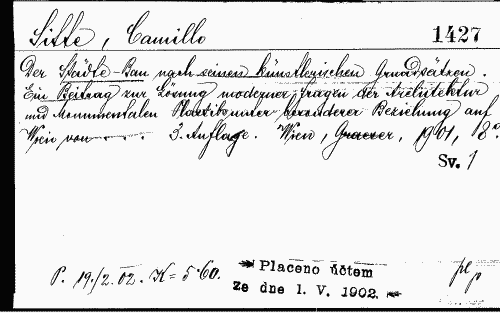 Sitte, Camillo 1427
Der Städte-Bau nach seinen künstlerischen Grundsätzen.
Ein Beitrag zur Lösung moderner Fragen der Architektur
und Monumentalen Plastik unter besonderer Beziehung auf
Wien von - - - . 3. Auflage. Wien, Graeser, 1901, 8°.
Sv. 1
P. 19./2. 02. K = 5·60. Placeno účtem
ze dne 1. V. 1902.